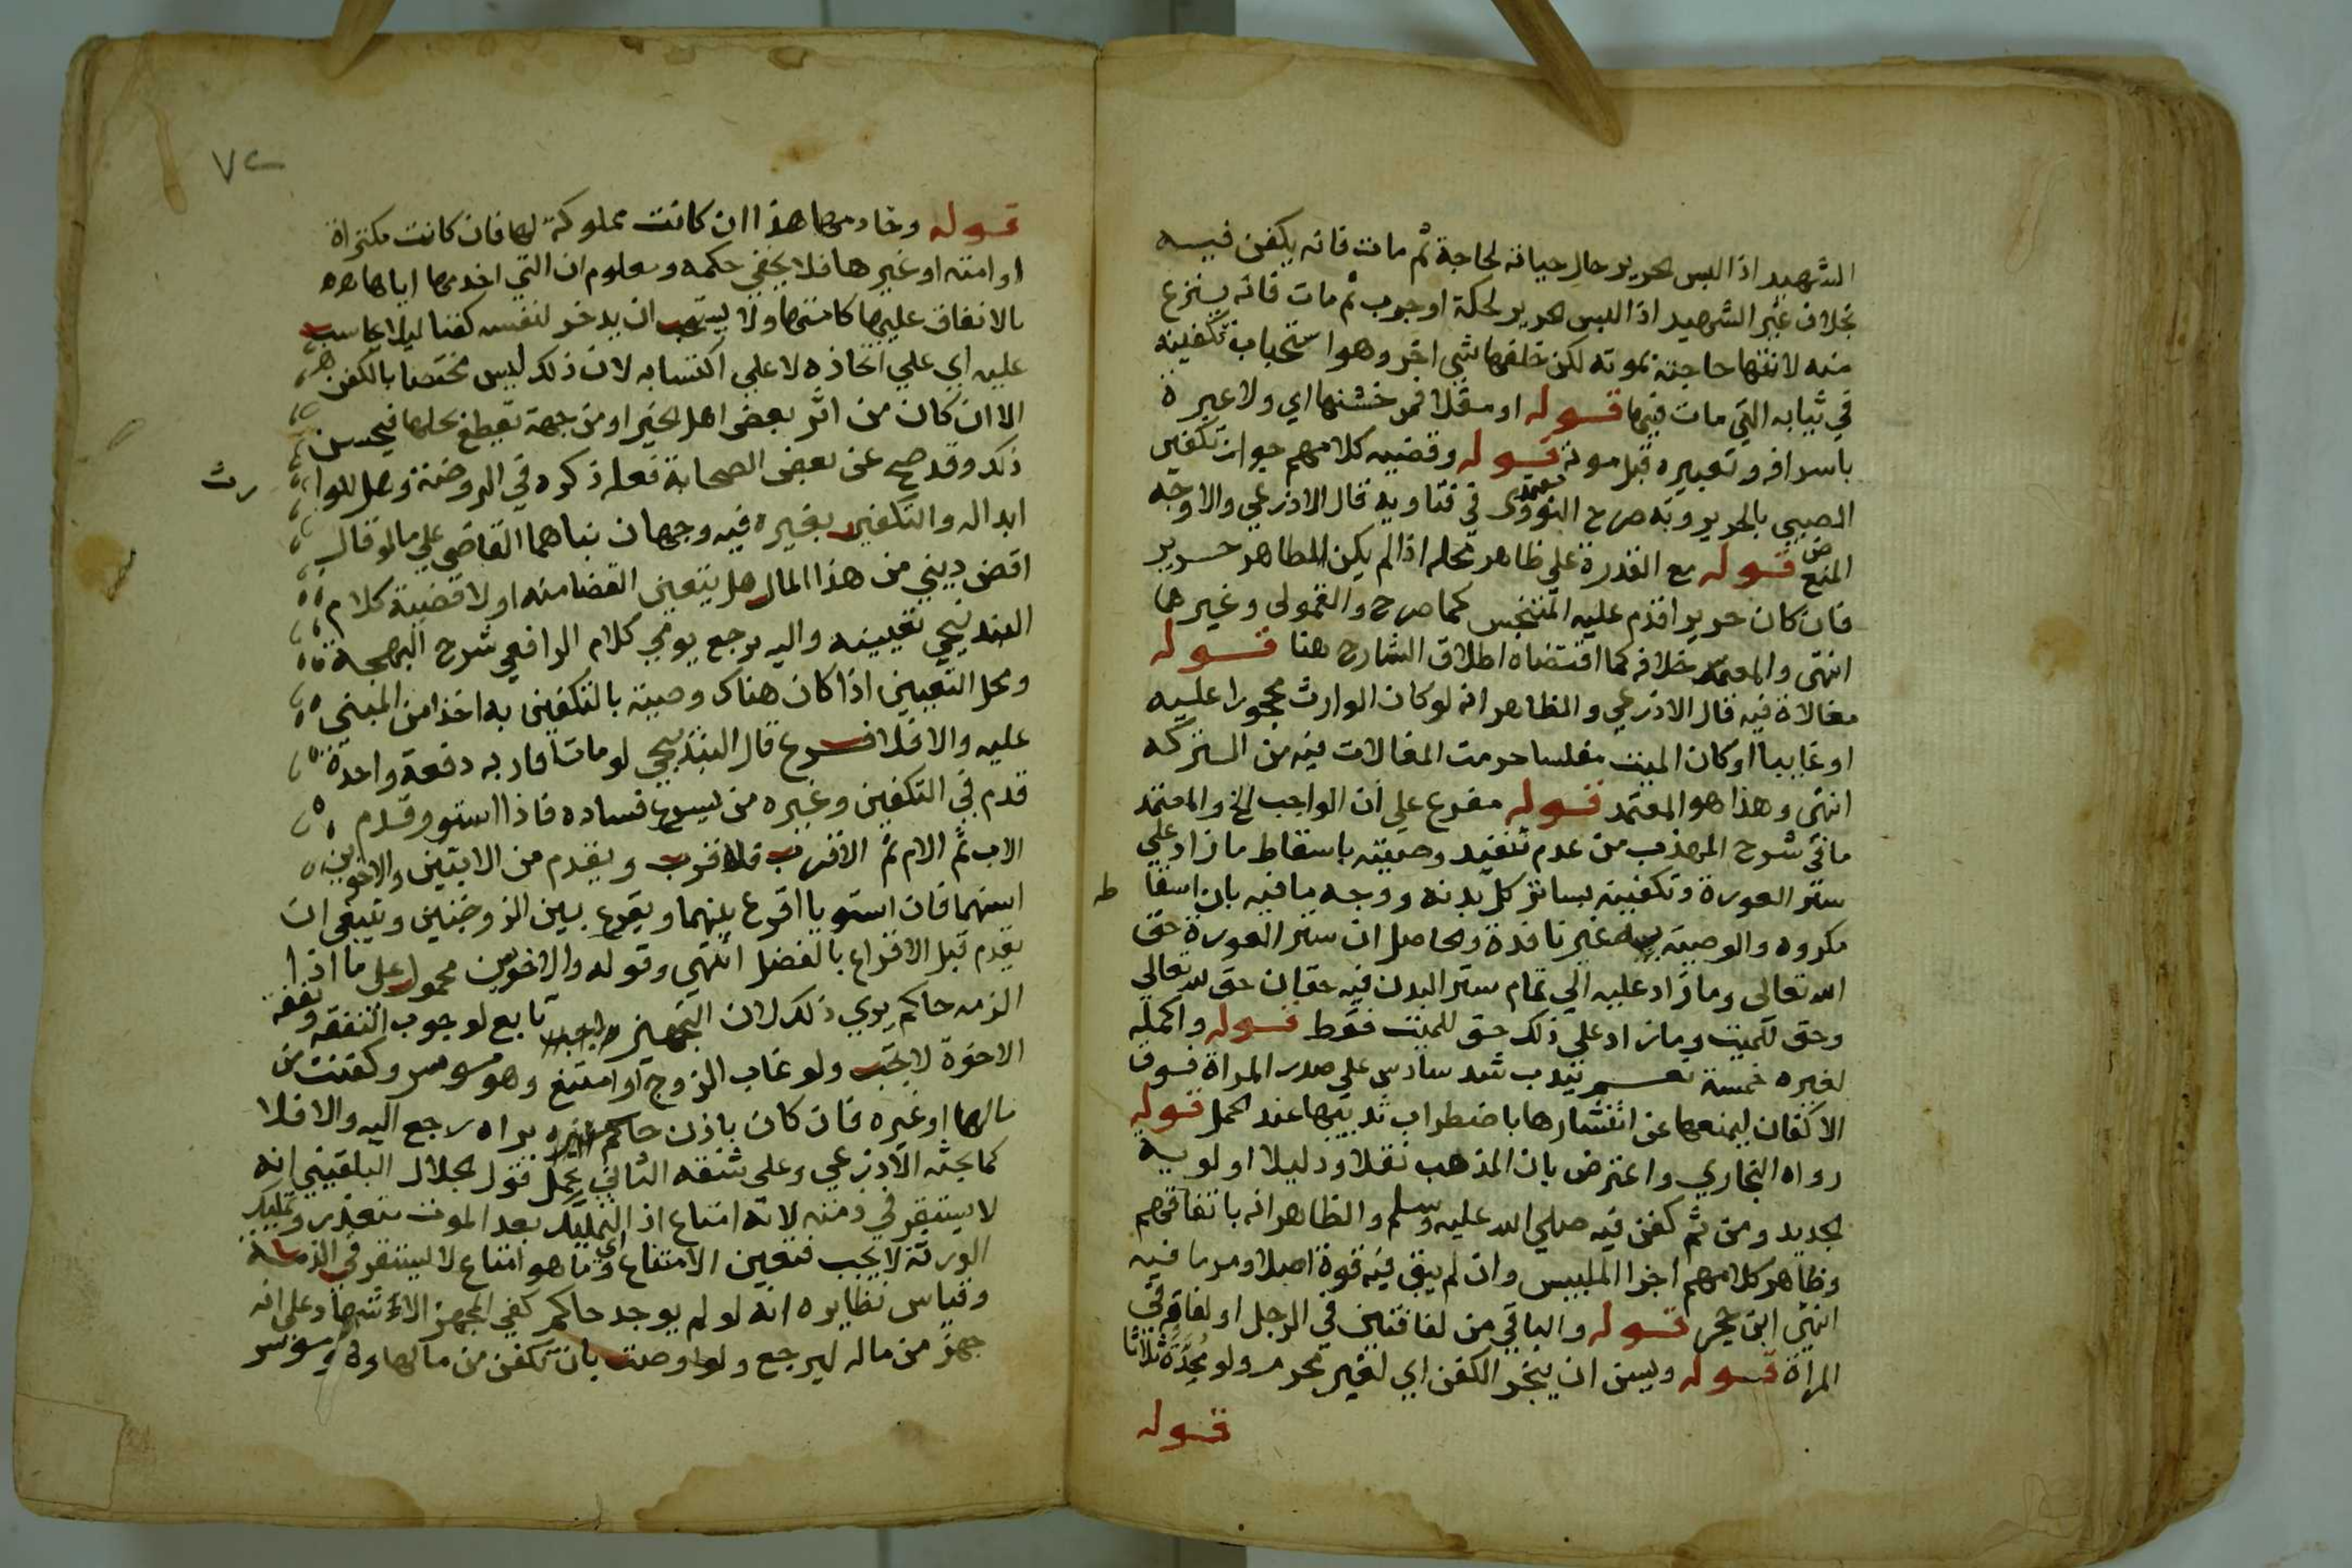 الشهيد اذا لبس الحرير حال حياته لحاجة ثم مات فانه يكفن فيه
بخلاف غير الشهيد اذا لبس الحرير لحكة او جرب ثم مات فانه ينزع
منه لانتها حاجته بموته لكن خلفها شي اخر وهو استحباب تكفينه
في ثيابه التي مات فيها قوله او مقلا فمن خشنها اي ولا عبرة
باسرافه وتعبيره قبل موته قوله وقضيه كلامهم جواز تكفين
الصبي بالحرير وبه صرح النووي في فتاويه قال الاذرعي والاوجه
المنع قوله مع القدرة علي ظاهر محله اذا لم يكن الطاهر حرير
فان كان حريرا قدم عليه المتنجس كما صرح والقمولي وغيرها
انتهى والمعتمد خلافه كما اقتضاه اطلاق الشارح هنا قوله
مغالاة فيه قال الاذرعي والظاهر انه لو كان الوارث محجورا عليه
او غايبا او كان الميت مفلسا حرمت المغالات فيه من التركه
انتهى وهذا هو المعتمد قوله مفرع علي ان الواجب الخ والمعتمد
ما في شرح المهذب من عدم تنفيذ وصيته باسقاط ما زاد علي
ستر العورة وتكفينه بساتر كل بدنه ووجه ما فيه بان اسقا ط
مكروه والوصية به غير نافذة والحاصل ان ستر العورة حق
الله تعالى وما زاد عليه الي تمام ستر البدن فيه حقان حق لله تعالي
وحق للميت وما زاد علي ذلك حق للميت فقط قوله واكمله
لغيره خمسة نعم يندب شد سادس علي صدر المراة فوق
الاكفان ليمنعها عن انتشارها باضطراب ثدييها عند الحمل قوله
رواه البخاري واعترض بان المذهب نقلا ودليلا اولوية
الجديد ومن ثم كفن فيه صلي الله عليه وسلم والظاهر انه باتفاقهم
وظاهر كلامهم اجزا الملبيس وان لم يبق فيه قوة اصلا ومر ما فيه
انتهي ابن حجر قوله والباقي من لفافتين في الرجل او لفافة في
المراة قوله ويسن ان يبخر الكفن اي لغير محرم ولو محدة ثلاثا
قوله
٧٢
قوله وخادمها هذا ان كانت مملوكة لها فان كانت مكتراة
او امته او غيرها فلا يخفي حكمه ومعلوم ان التي اخدمها اياها
بالانفاق عليها كامتها ولا يستحب ان يدخر لنفسه كفنا ليلا يحاسب
عليه اي علي اتخاذه لا علي اكتسابه لان ذلك ليس مختصا بالكفن
الا ان كان من اثر بعض اهل الخير او من جهة تقطع بحلها فيحسن
ذلك وقد صح عن بعض الصحابة فعله ذكره في الروضة وهل للوا رث
ابداله والتكفين بغيره فيه وجهان بناهما القاضي علي ما لو قال
اقض ديني من هذا المال هل يتعين القضا منه اولا قضية كلام
البندنيجي تعيينه واليه يرجع يومي كلام الرافعي شرح البهجة
ومحل التعيين اذا كان هناك وصية بالتكفين به اخذا من المبني
عليه والا فلا فرع قال البندنيجي لو مات اقاربه دفعة واحدة
قدم في التكفين وغيره من يسرع فساده فاذا استوو قدم
الاب ثم الام ثم الاقرب فالاقرب ويقدم من الابنين والاخوين
اسنهما فان استويا اقرع بينهما ويقرع بين الزوجتين وينبغي ان
يقدم قبل الاقراع بالفضل انتهى وقوله والاخوين محمول علي ما اذا
الزمه حاكم يري ذلك لان التجهيز تابع لوجوب النفقه ونفقة
الاخوة لا تجب ولو غاب الزوج او امتنع وهو موسر وكفنت من
مالها او غيره فان كان باذن حاكم يراه رجع اليه والا فلا
كما بحثه الاذرعي وعلي شقه الثاني يحمل قول الجلال البلقيني انه
لا يستقر في ذمته لانه امتاع اذ التمليك بعد الموت متعذر وتمليك
الورثة لا يجب فتعين الامتاع وما هو امتاع لا يستقر في الذمة
وقياس نظايره انه لو لم يوجد حاكم كفي المجهز الاشهاد علي انه
جهز من ماله ليرجع ولو اوصت بان تكفن من مالها وهو موسر